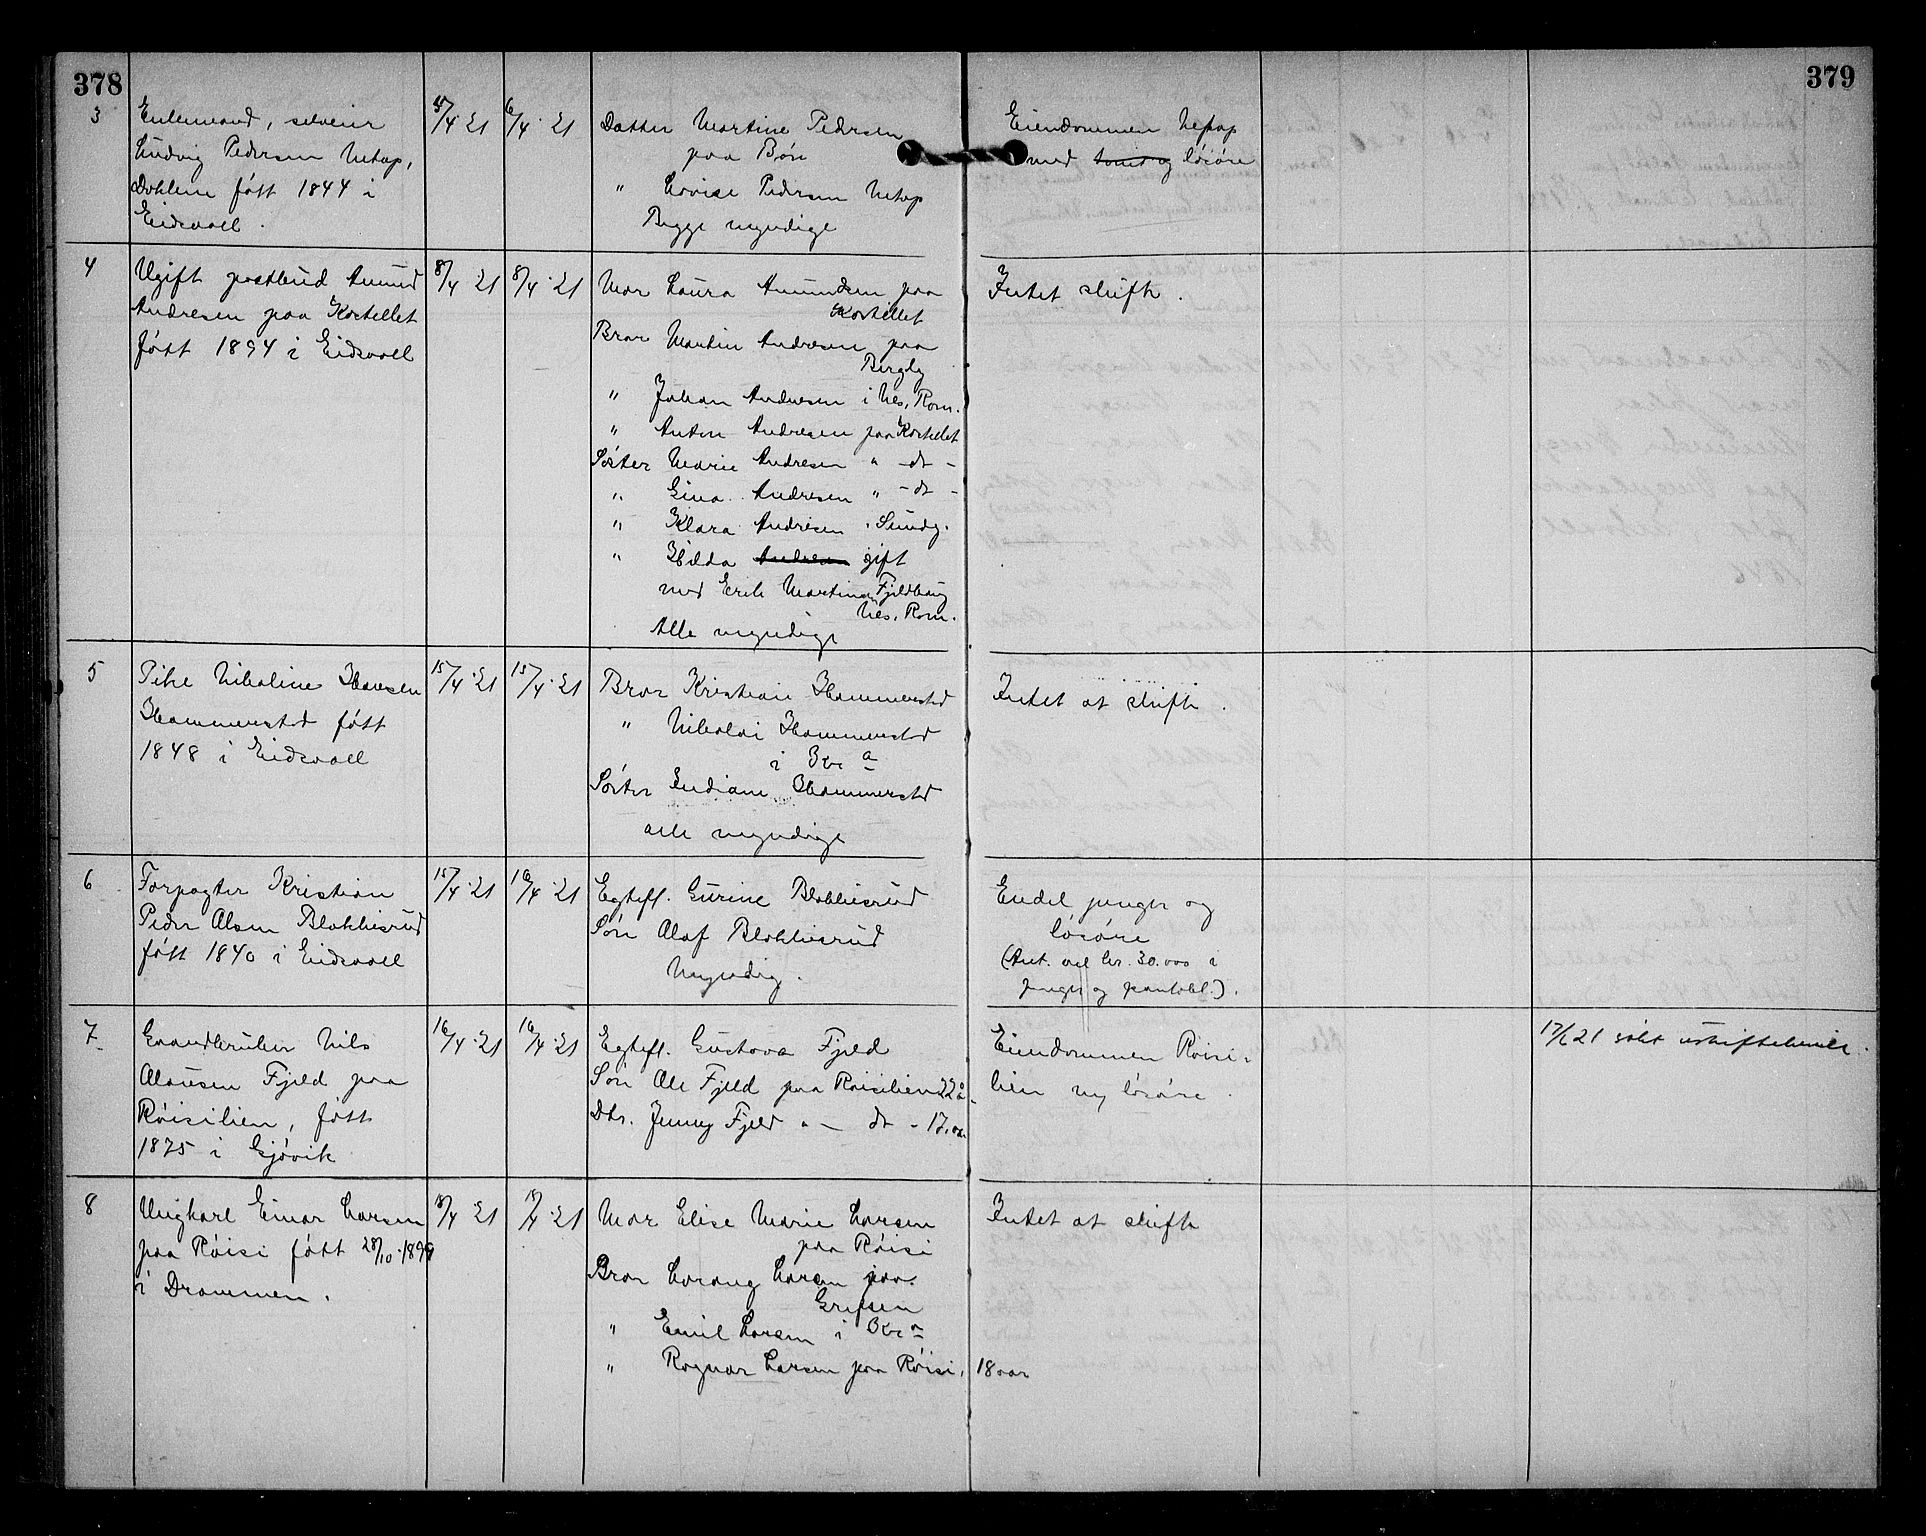 378
379
3
Enkemand, selveier
Ludvig Pedersen Netop,
Dohlen født 1844 i
Eidsvoll.
5/4 21
6/4 21
Datter Martine Pedersen
paa Bøn
" Lovise Pedersen Netop
Begge myndige
Eiendommen Netop
med løsøre
4
Ugift postbud Amund
Andresen paa Kastellet
født 1894 i Eidsvoll
8/4 21
8/4 21
Mor Laura Amundsen paa
Kastellet
Bror Martin Andresen paa
Bergly
" Johan Andresen i Nes, Rom.
" Anton Andresen paa Kastellet
Søster Marie Andresen " - dt -
" Gina Andresen " - dt -
" Klara Andresen Sundg.
" Hilda Andresen gift
med Erik Martinsen Fjeldhaug
Nes, Rom.
Alle myndige
Intet skifte.
5
Pike Nikoline Hansen
Hammerstad født
1848 i Eidsvoll
15/4 21
15/4 21
Bror Kristian Hammerstad
" Nikolai Hammerstad
i Kr a
Søster Indiane Hammerstad
alle myndige
Intet at skifte.
6
Forpagter Kristian
Peder Olsen Blakkisrud
født 1840 i Eidsvoll
15/4 21
16/4 21
Egtefl. Gurine Blakkisrud
Søn Olaf Blakkisrud
Myndig.
Endel penger og
løsøre
(Ant. vel kr. 30.000 i
penger og pantobl.).
7
Grandbruker Nils
Olausen Fjeld paa
Røisilien, født
1875 i Gjøvik
16/4 21
16/4 21
Egtefl. Gustava Fjeld
Søn Ole Fjeld paa Røisilien 22 a
Dtr. Jenny Fjeld " - dt - 17 aar
Eiendommen Røisi-
lien og løsøre.
17/6 21 uskiftebevill.
8
Ungkarl Einar Larsen
paa Røisi født 28/10 1899
i Drammen.
8/4 21
Mor Elise Marie Larsen
paa Røisi
Bror Larsen paa
" Emil Larsen i Kr a
" Ragnar Larsen paa Røisi, 18 aar
Intet at skifte